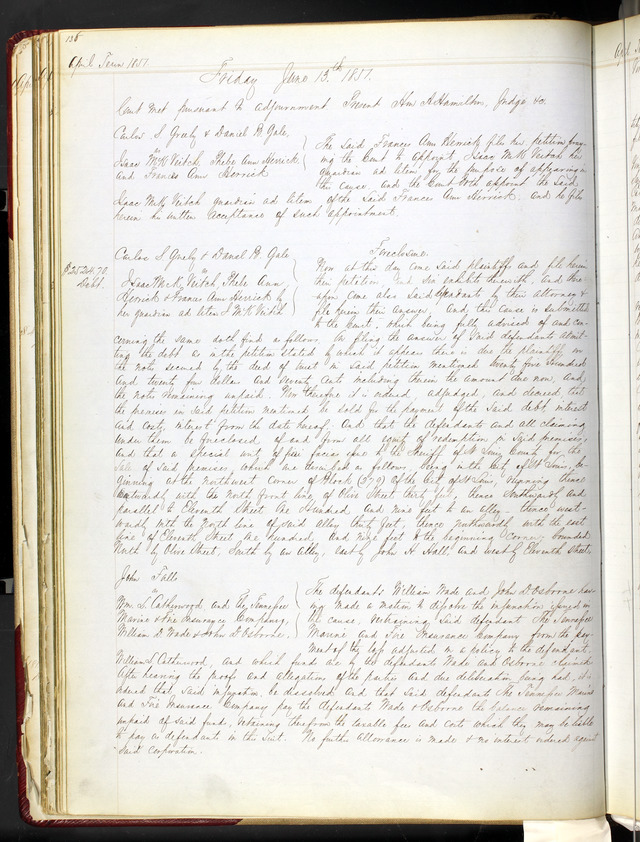 138
April Term 1851.
Friday June 13th 1851.
Court met pursuant to adjournment Present Hon A Hamilton, Judge &c.
Carlos S. Greely & Daniel B. Gale,
vs
Isaac McK Veitch, Phebe Ann Herrick
and Frances Ann Herrick
The said Frances Ann Herrick files her petition pray-
ing the Court to appoint Isaac McK Veitch her
guardian ad litem for the purpose of appearing in
this cause and the Court doth appoint the said
Isaac McK Veitch guardian ad litem of the said Frances Ann Herrick. And he files
herein his written acceptance of such appointment.
Carlos S Greely & Daniel B. Gale
vs
Isaac McK. Veitch, Phebe Ann
Herrick & Frances Ann Herrick by
her guardian ad litem I McK Veitch
$2524.70
Debt.
Foreclosure.
Now at this day come said plaintiffs and file herein
their petition and exhibits therewith, and there-
upon come also said defendants by their attorney &
file herein their answer, and this cause is submitted
to the Court, which being fully advised of and con-
cerning the same doth find as follows, on filing the answer of said defendants admit-
ting the debt as in the petition stated by which it appears there is due the plaintiffs on
the notes secured by the deed of trust in said petition mentioned twenty five hundred
and twenty four dollars and seventy cents including therein the amount due now, and
the notes remaining unpaid. Now therefore it is ordered, adjudged, and decreed that
the premises in said petition mentioned be sold for the payment of the said debt, interest
and costs, interest from the date hereof. And that the defendants and all claiming
under them be foreclosed of and from all equity of redemption in said premises,
and that a special writ of fieri facias issue to the Sheriff of St Louis County for the
sale of said premises which are described as follows, being in the City of St Louis, be-
ginning at the northwest corner of Block (279) of the City of St Louis, running thence
Eastwardly with the North front line of Olive Street thirty feet, thence Southwardly and
parallel to Eleventh Street One Hundred and nine feet to an alley - thence west-
wardly with the North line of said alley thirty feet, thence northwardly with the east
line of Eleventh Street, One Hundred, and nine feet to the beginning corner, bounded
North by Olive Street, South by an Alley, east by John H Hall and west by Eleventh Street.
John Falls
vs
Wm. S. Catherwood, and The Tennessee
Marine & Fire Insurance Company,
William D. Wade & John D. Osborne,
The defendants William Wade and John D Osborne hav-
ing made a motion to dissolve the injunction issued in
the cause, restraining said defendant the Tennessee
Marine and Fire Insurance Company from the pay-
ment of the loss adjusted on a policy to the defendant
William S Catherwood, and which fund is by the defendants Wade and Osborne claimed
After hearing the proofs and allegations of the parties and due deliberation being had, it is
ordered that said injunction be dissolved and that said defendants The Tennessee Marine
and Fire Insurance Company pay the defendants Wade & Osborne the balance remaining
unpaid of said fund, retaining therefrom the taxable fees and costs which they may be liable
to pay as defendants in this suit. No further allowance is made & no interest ordered against
said Corporation.